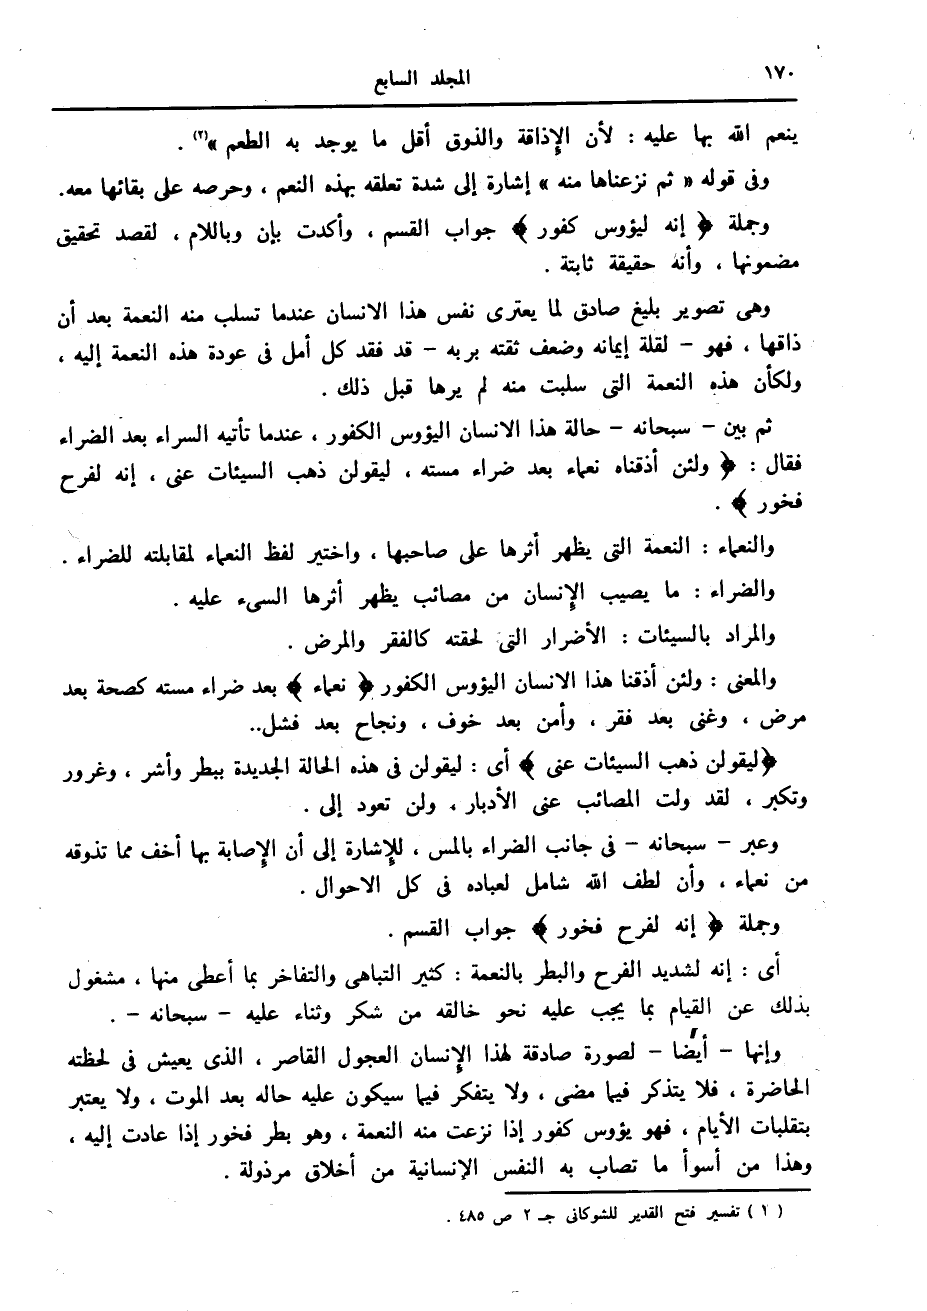 ١٧٠
المجلد السابع
ينعم الله بها عليه : لأن الإذاقة والذوق أقل ما يوجد به الطعم »(٢) .
وفى قوله « ثم نزعناها منه » إشارة إلى شدة تعلقه بهذه النعم ، وحرصه على بقائها معه.
وجملة ﴿ إنه ليؤوس كفور ﴾ جواب القسم ، وأكدت بإن وباللام ، لقصد تحقيق
مضمونها ، وأنه حقيقة ثابتة .
وهى تصوير بليغ صادق لما يعترى نفس هذا الانسان عندما تسلب منه النعمة بعد أن
ذاقها ، فهو – لقلة إيمانه وضعف ثقته بربه – قد فقد كل أمل فى عودة هذه النعمة إليه ،
ولكأن هذه النعمة التى سلبت منه لم يرها قبل ذلك .
ثم بين – سبحانه – حالة هذا الانسان اليؤوس الكفور ، عندما تأتيه السراء بعد الضراء
فقال : ﴿ ولئن أذقناه نعماء بعد ضراء مسته ، ليقولن ذهب السيئات عنى ، إنه لفرح
فخور ﴾ .
والنعماء : النعمة التى يظهر أثرها على صاحبها ، واختير لفظ النعماء لمقابلته للضراء .
والضراء : ما يصيب الإنسان من مصائب يظهر أثرها السىء عليه .
والمراد بالسيئات : الأضرار التى لحقته كالفقر والمرض .
والمعنى : ولئن أذقنا هذا الانسان اليؤوس الكفور ﴿ نعماء ﴾ بعد ضراء مسته كصحة بعد
مرض ، وغنى بعد فقر ، وأمن بعد خوف ، ونجاح بعد فشل..
﴿ليقولن ذهب السيئات عنى ﴾ أى : ليقولن فى هذه الحالة الجديدة ببطر وأشر ، وغرور
وتكبر ، لقد ولت المصائب عنى الأدبار ، ولن تعود إلى .
وعبر – سبحانه – فى جانب الضراء بالمس ، للإشارة إلى أن الإصابة بها أخف مما تذوقه
من نعماء ، وأن لطف الله شامل لعباده فى كل الاحوال .
وجملة ﴿ إنه لفرح فخور ﴾ جواب القسم .
أى : إنه لشديد الفرح والبطر بالنعمة : كثير التباهى والتفاخر بما أعطى منها ، مشغول
بذلك عن القيام بما يجب عليه نحو خالقه من شكر وثناء عليه – سبحانه – .
وإنها – أيضا – لصورة صادقة لهذا الإنسان العجول القاصر ، الذى يعيش فى لحظته
الحاضرة ، فلا يتذكر فيما مضى ، ولا يتفكر فيما سيكون عليه حاله بعد الموت ، ولا يعتبر
بتقلبات الأيام ، فهو يؤوس كفور إذا نزعت منه النعمة ، وهو بطر فخور إذا عادت إليه ،
وهذا من أسوأ ما تصاب به النفس الإنسانية من أخلاق مرذولة .
( ١ ) تفسير فتح القدير للشوكانى جـ ٢ ص ٤٨٥ .